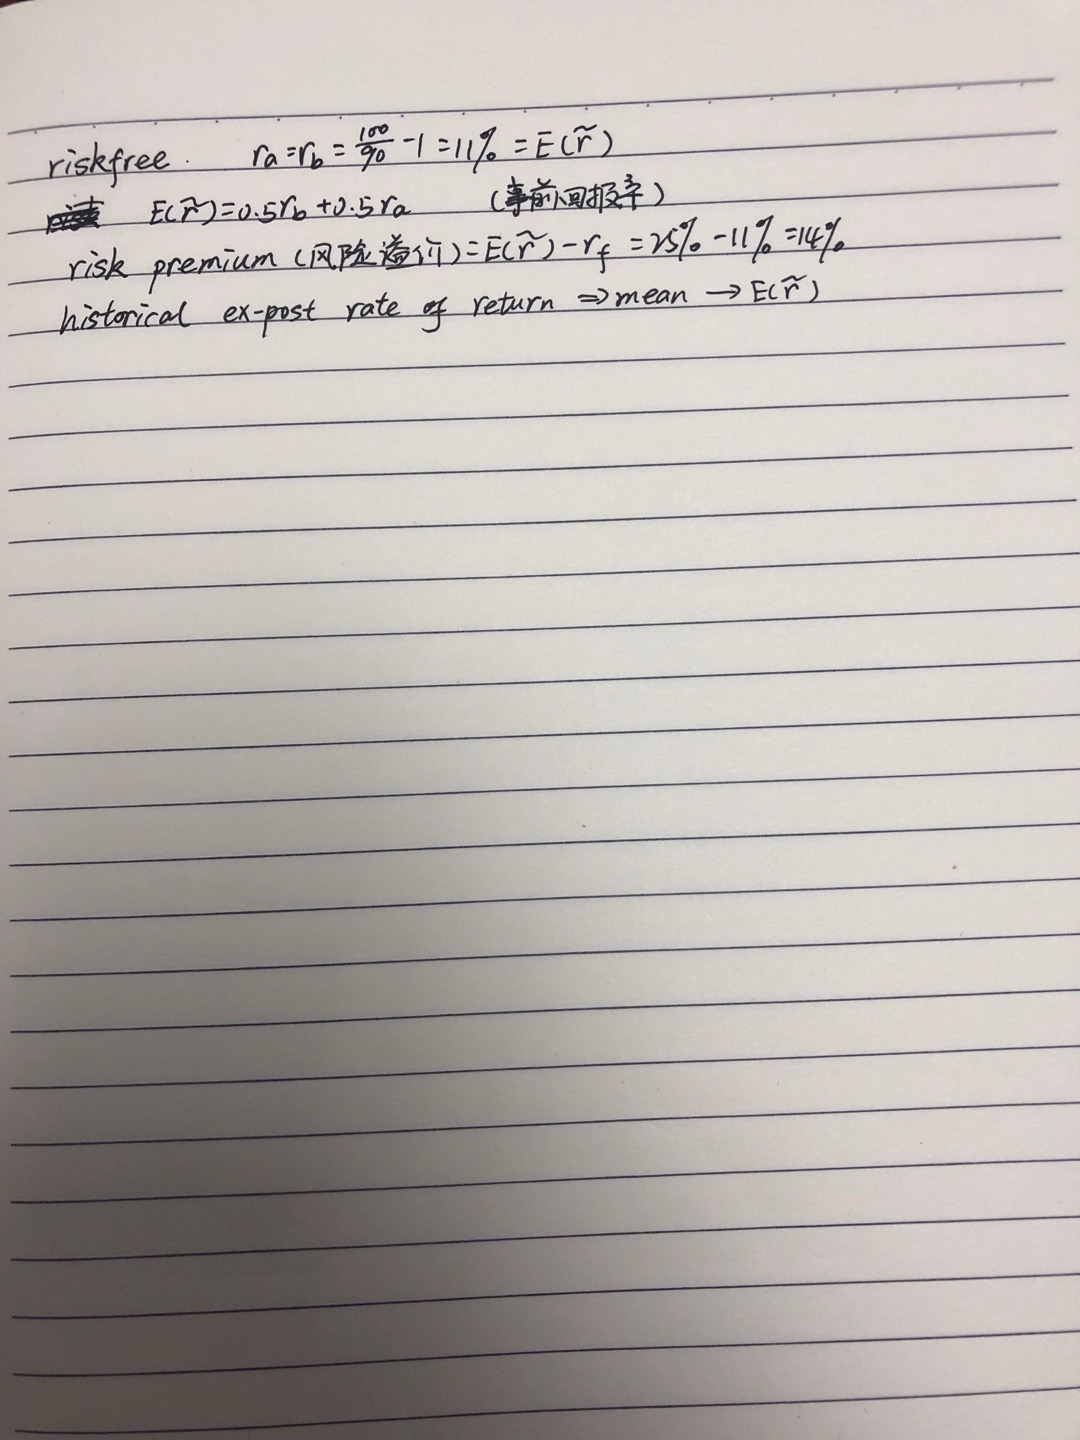 riskfree. ra = rb = 100/90 - 1 = 11% = E(r̃)
E(r̃) = 0.5rb + 0.5ra (事前回报率)
risk premium (风险溢价) = E(r̃) - rf = 25% - 11% = 14%
historical ex-post rate of return ⇒ mean → E(r̃)